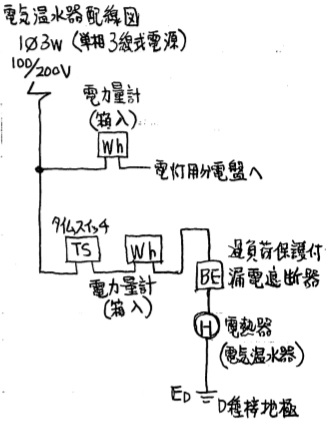 電気温水器配線図
1φ3W (単相3線式電源)
100/200V
電力量計
(箱入)
Wh
電灯用分電盤へ
タイムスイッチ
TS
Wh
電力量計
(箱入)
過負荷保護付
BE
漏電遮断器
H
電熱器
(電気温水器)
ED
D種接地極